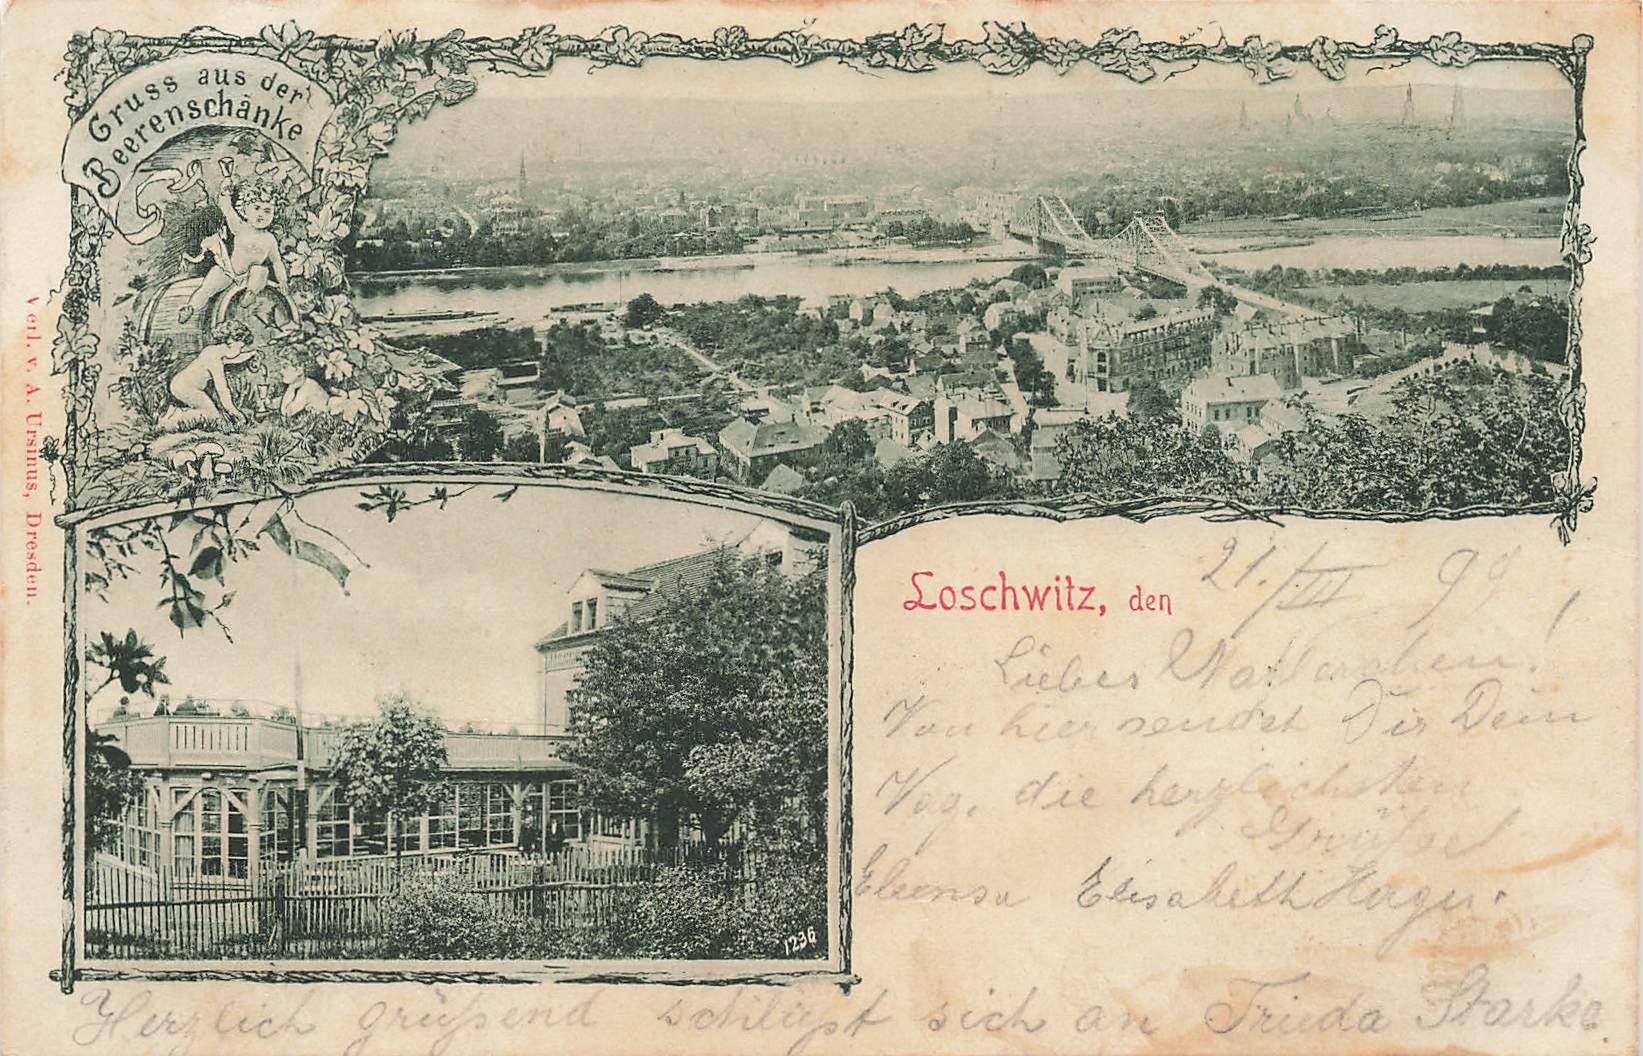 Gruss aus der
Beerenschänke
Verl. v. A. Ursinus, Dresden.
1236
Loschwitz, den 21./VII 98
Liebes
Von hier sendet Dir Dein
die herzlichsten
Grüße
Ebenso Elisabeth Hager.
Herzlich grüßend schließt sich an Frieda Starke.